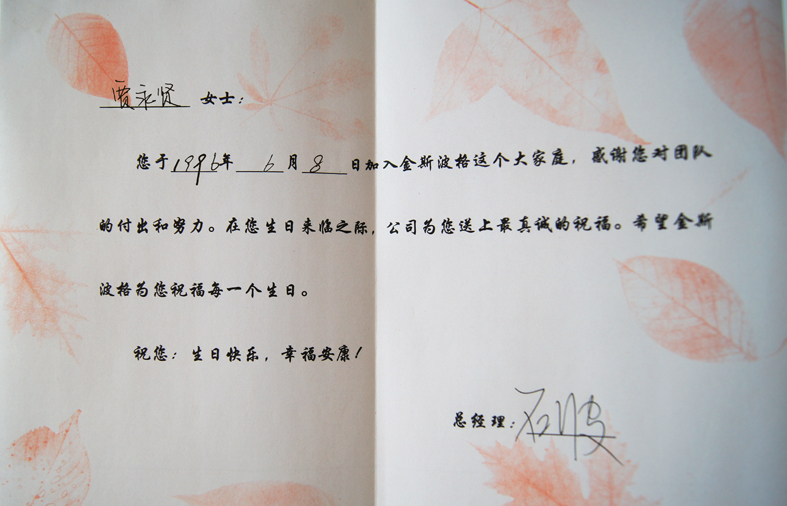 贾永贤 女士：
您于1996年 6 月 8 日加入金斯波格这个大家庭，感谢您对团队
的付出和努力。在您生日来临之际，公司为您送上最真诚的祝福。希望金斯
波格为您祝福每一个生日。
祝您：生日快乐，幸福安康！
总经理：石波